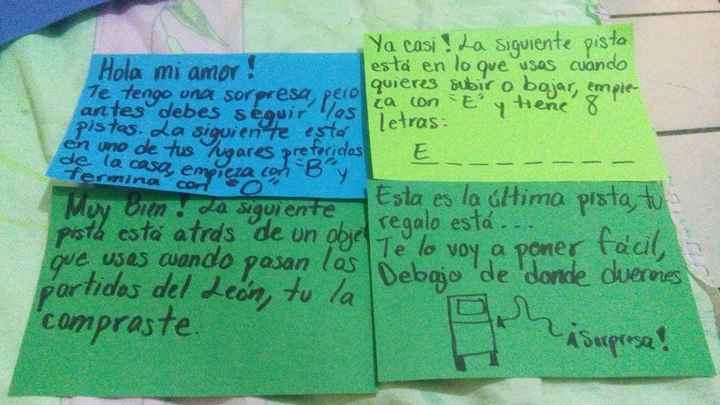 Hola mi amor!
Te tengo una sorpresa, pero
antes debes seguir las
pistas. La siguiente está
en uno de tus lugares preferidos
de la casa, empieza con "B" y
termina con "O"
Ya casi! La siguiente pista
está en lo que usas cuando
quieres subir o bajar, empie-
za con "E" y tiene 8
letras:
E _ _ _ _ _ _ _
Muy Bien! La siguiente
pista está atrás de un obje
que usas cuando pasan los
partidos del León, tu la
compraste.
Esta es la última pista, tu
regalo está...
Te lo voy a poner fácil,
Debajo de donde duermes
¡Sorpresa!